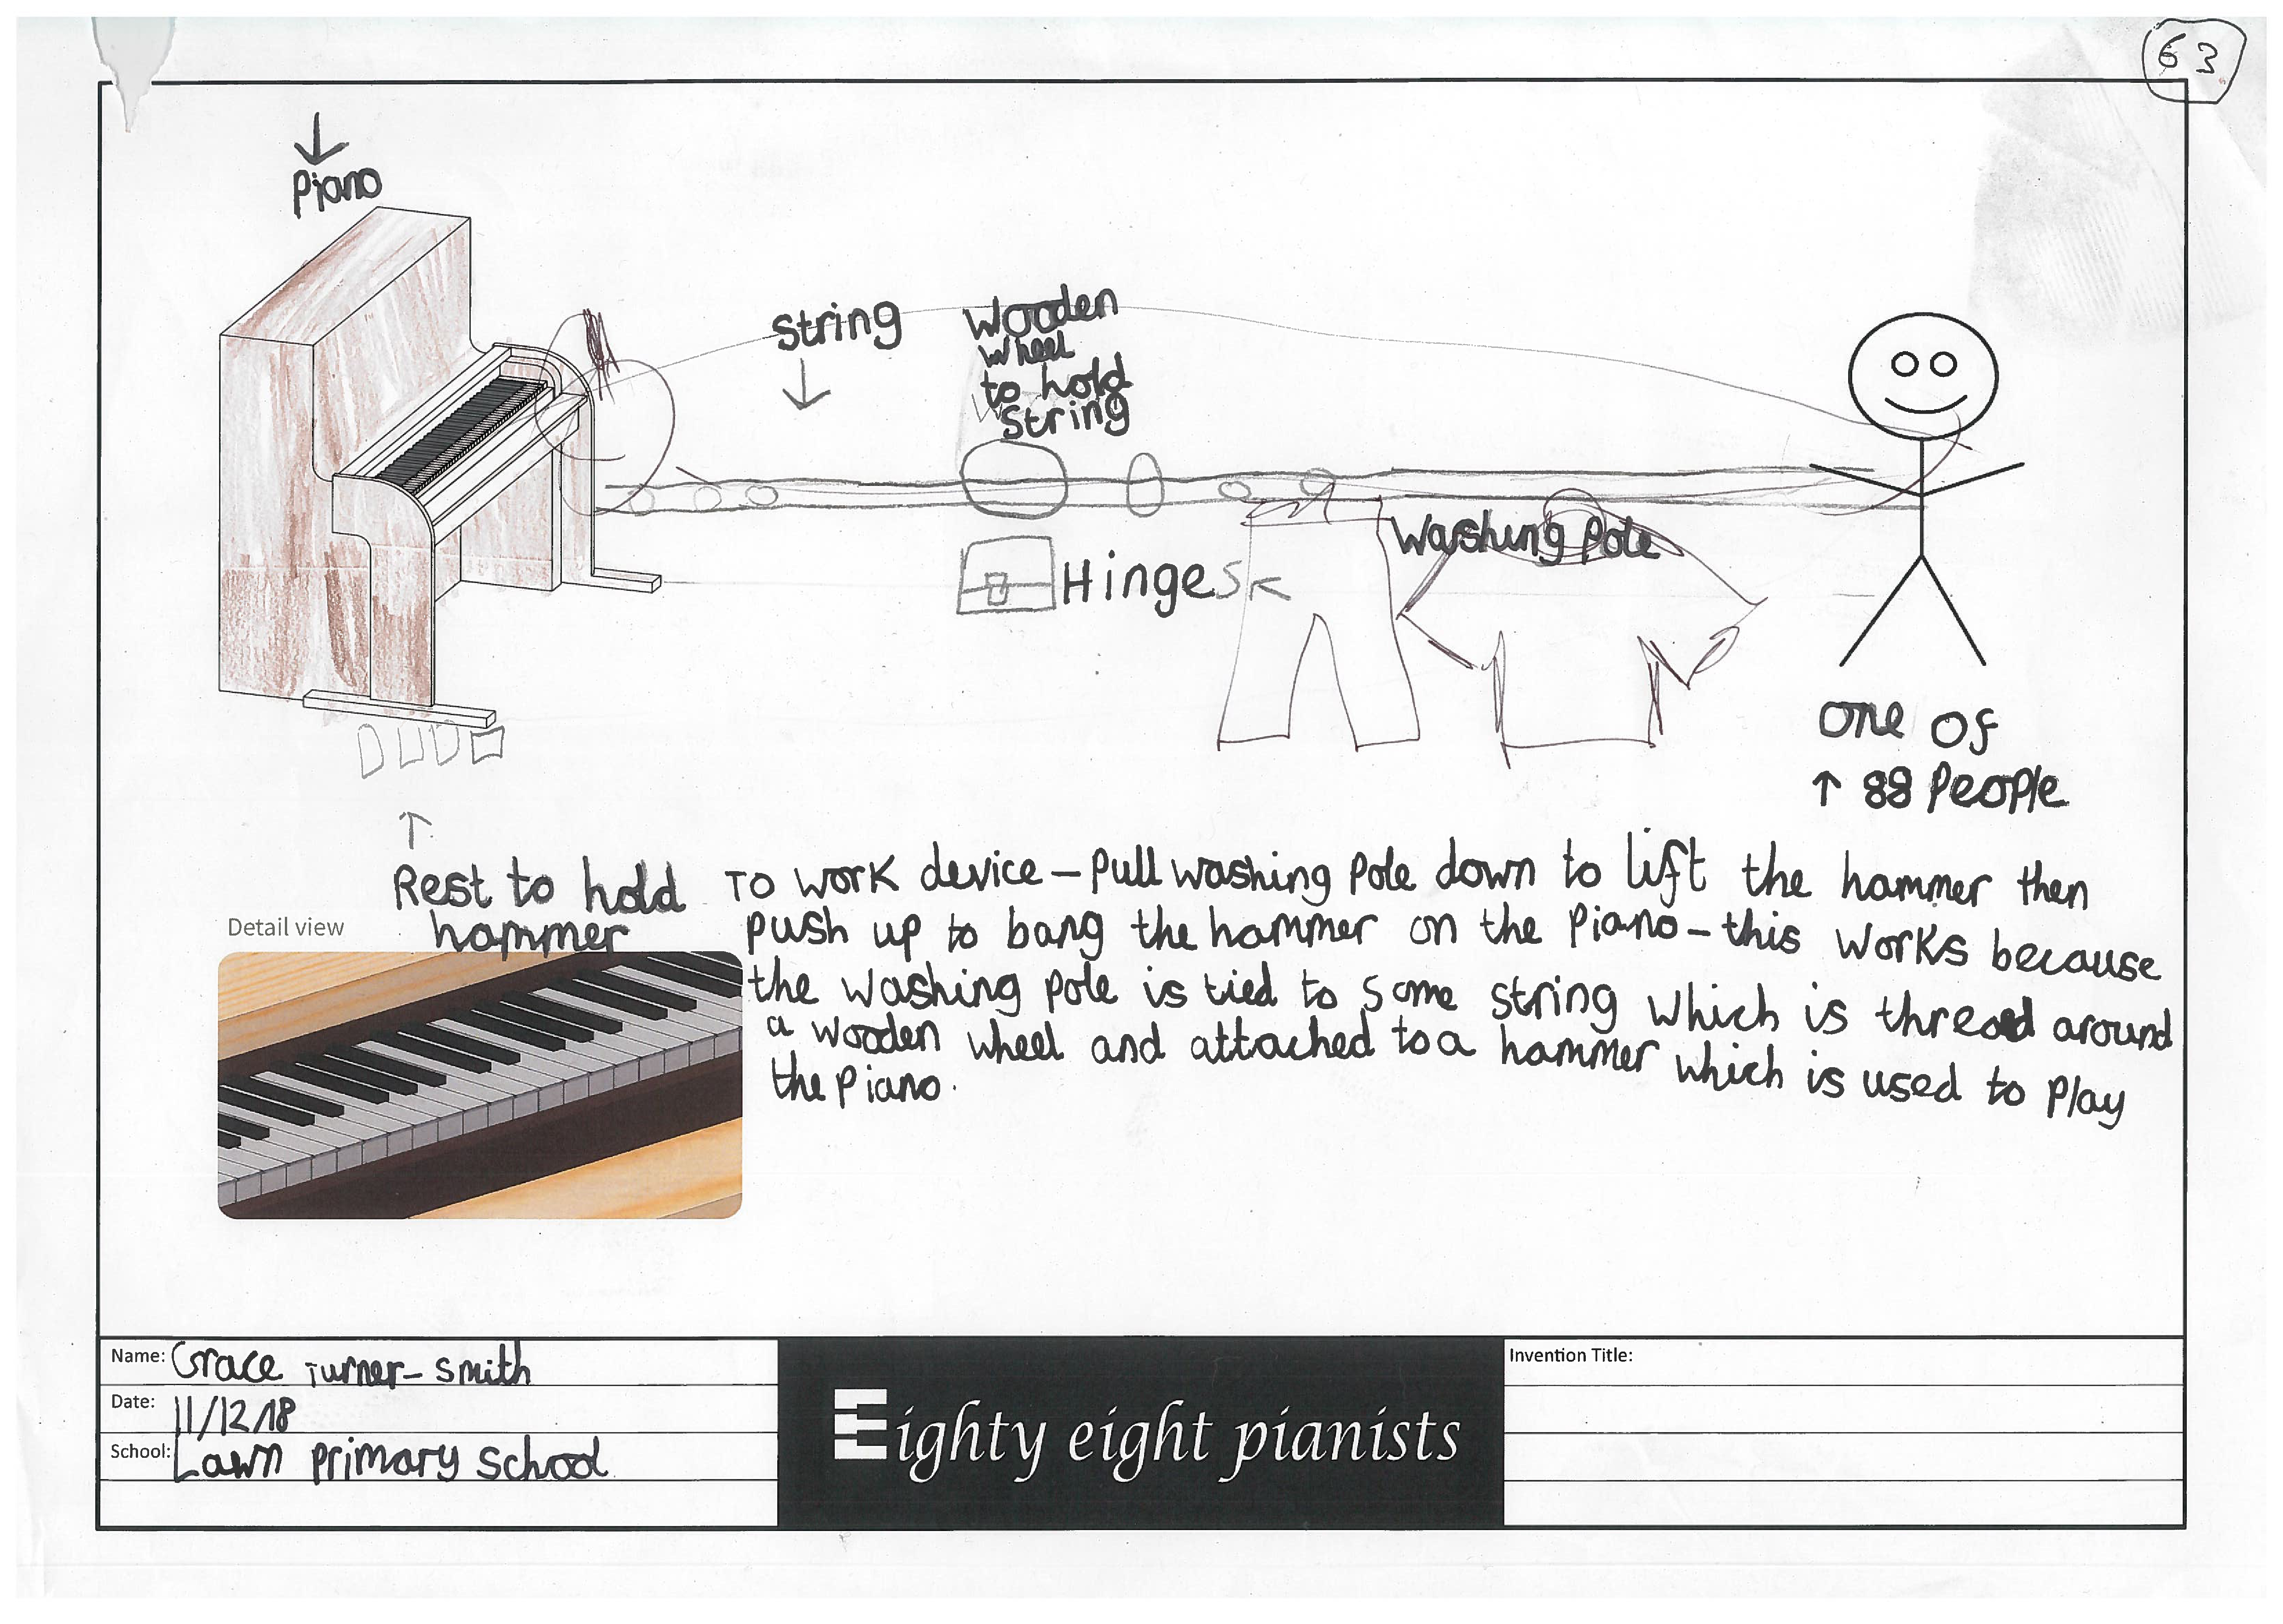 62
Piano
String
Wooden
wheel
to hold
String
Washing Pole
Hinges
one of
88 People
Rest to hold
hammer
Detail view
To work device - Pull washing Pole down to lift the hammer then
push up to bang the hammer on the Piano - this works because
the washing pole is tied to some string which is thread around
a wooden wheel and attached to a hammer which is used to Play
the Piano.
Name: Grace Turner-Smith
Date: 11/12/18
School: Lawn Primary School
Eighty eight pianists
Invention Title: